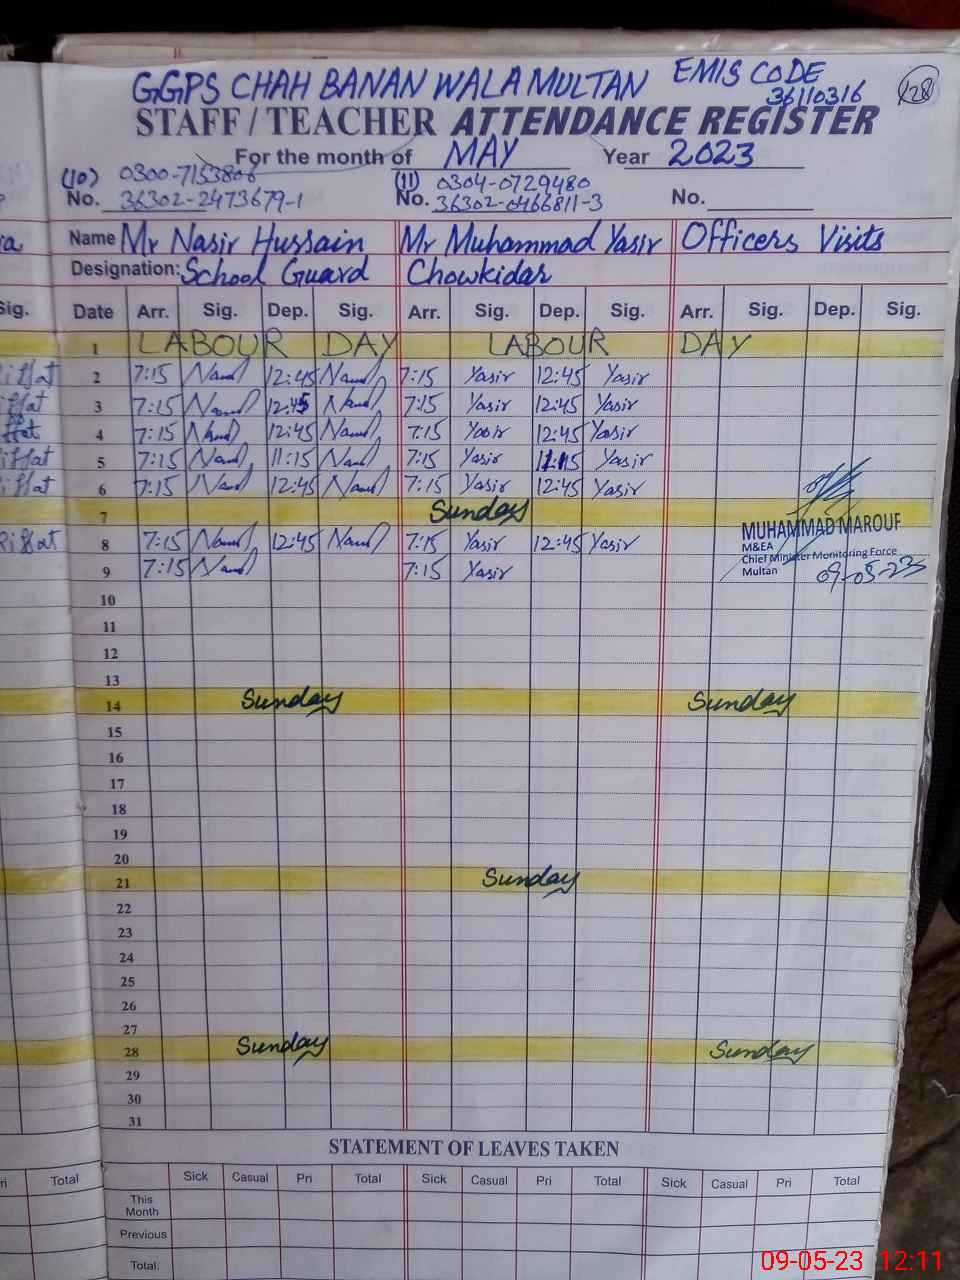 GGPS CHAH BANAN WALA MULTAN EMIS CODE 36110316 128
STAFF / TEACHER ATTENDANCE REGISTER
For the month of MAY Year 2023
(10) 0300-7153806 (11) 0304-0729480
No. 36302-2473679-1 No. 36302-0466811-3 No.
Name Mr Nasir Hussain Mr Muhammad Yasir Officers Visits
Designation: School Guard Chowkidar
Sig. Date Arr. Sig. Dep. Sig. Arr. Sig. Dep. Sig. Arr. Sig. Dep. Sig.
1 LABOUR DAY LABOUR DAY
2 7:15 12:45 7:15 Yasir 12:45 Yasir
3 7:15 12:45 7:15 Yasir 12:45 Yasir
4 7:15 12:45 7:15 Yasir 12:45 Yasir
5 7:15 11:15 7:15 Yasir 11:15 Yasir
6 7:15 12:45 7:15 Yasir 12:45 Yasir
7 Sunday
MUHAMMAD MAROUF
M&EA
Chief Minister Monitoring Force
Multan 09-05-23
8 7:15 12:45 7:15 Yasir 12:45 Yasir
9 7:15 7:15 Yasir
10
11
12
13
14 Sunday Sunday
15
16
17
18
19
20
21 Sunday
22
23
24
25
26
27
28 Sunday Sunday
29
30
31
STATEMENT OF LEAVES TAKEN
Total Sick Casual Pri Total Sick Casual Pri Total Sick Casual Pri Total
This Month
Previous
Total:
09-05-23 12:11